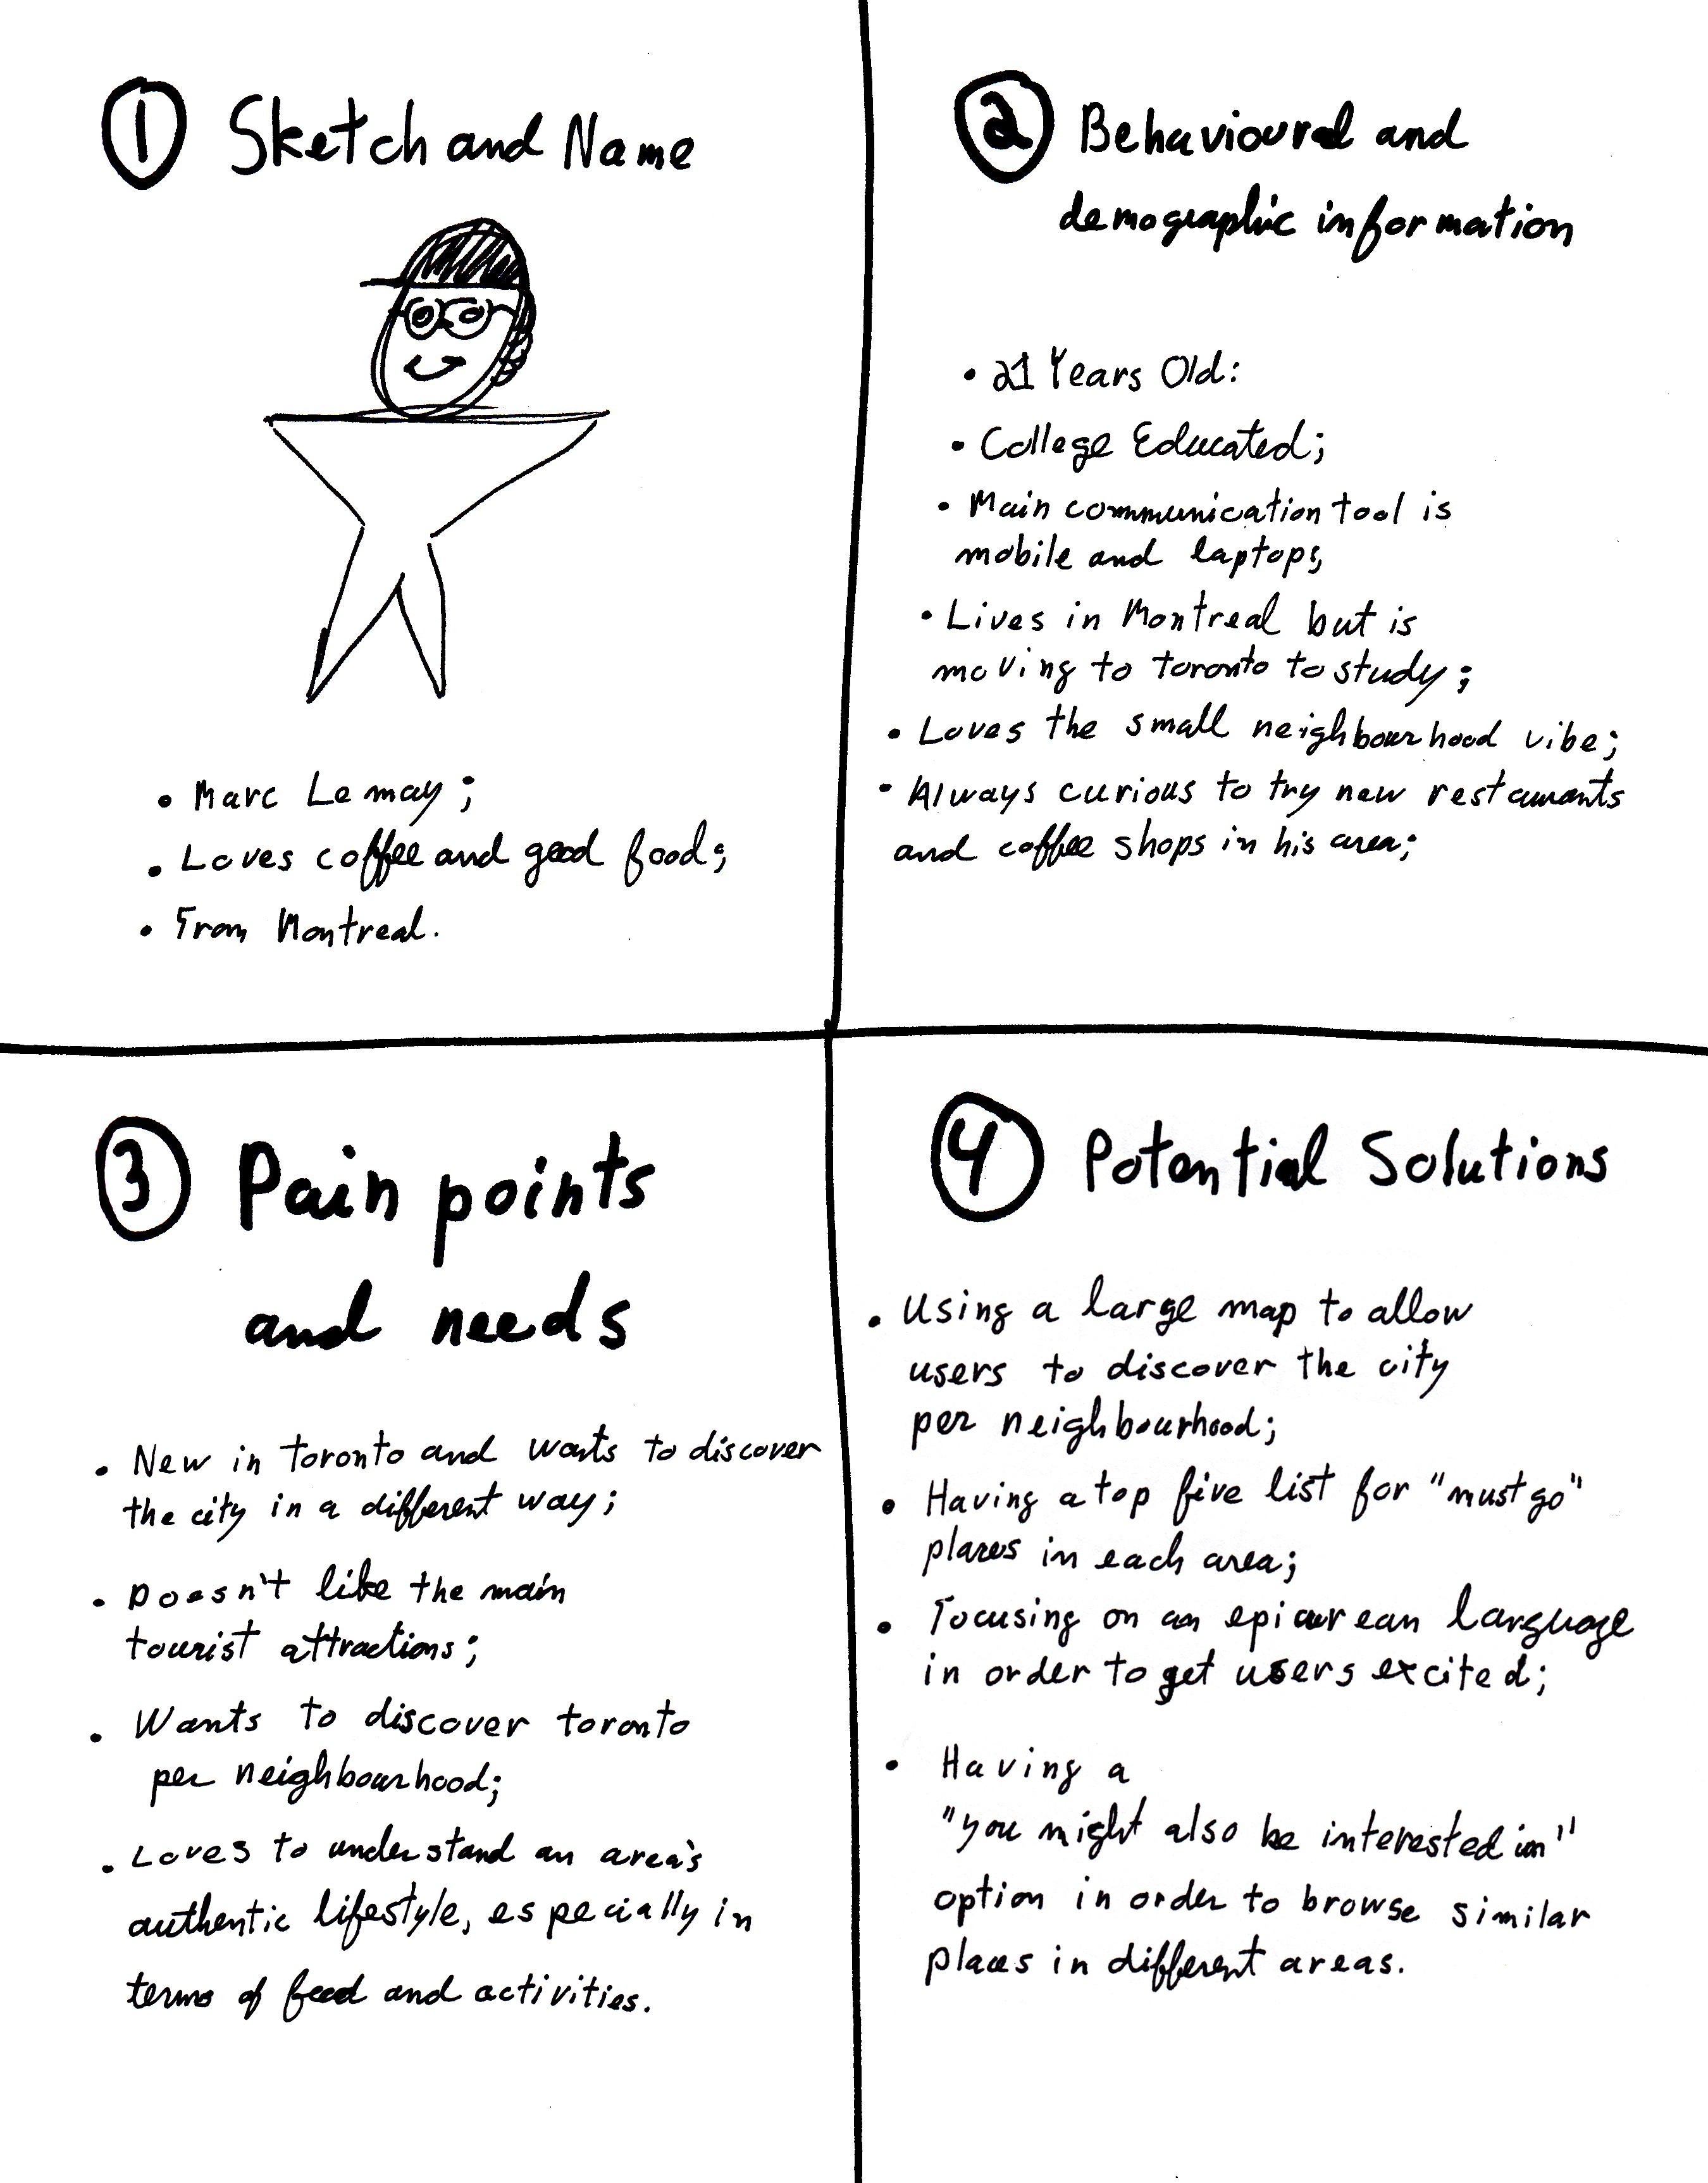 1 Sketch and Name
• Marc Lemay;
• Loves coffee and good food;
• From Montreal.
2 Behavioural and
demographic information
• 21 Years Old:
• College Educated;
• Main communication tool is
mobile and laptops;
• Lives in Montreal but is
moving to toronto to study;
• Loves the small neighbourhood vibe;
• Always curious to try new restaurants
and coffee shops in his area;
3 Pain points
and needs
• New in toronto and wants to discover
the city in a different way;
• Doesn't like the main
tourist attractions;
• Wants to discover toronto
per neighbourhood;
• Loves to understand an area's
authentic lifestyle, especially in
terms of food and activities.
4 Potential Solutions
• Using a large map to allow
users to discover the city
per neighbourhood;
• Having a top five list for "must go"
places in each area;
• Focusing on an epicurean language
in order to get users excited;
• Having a
"you might also be interested in"
option in order to browse similar
places in different areas.